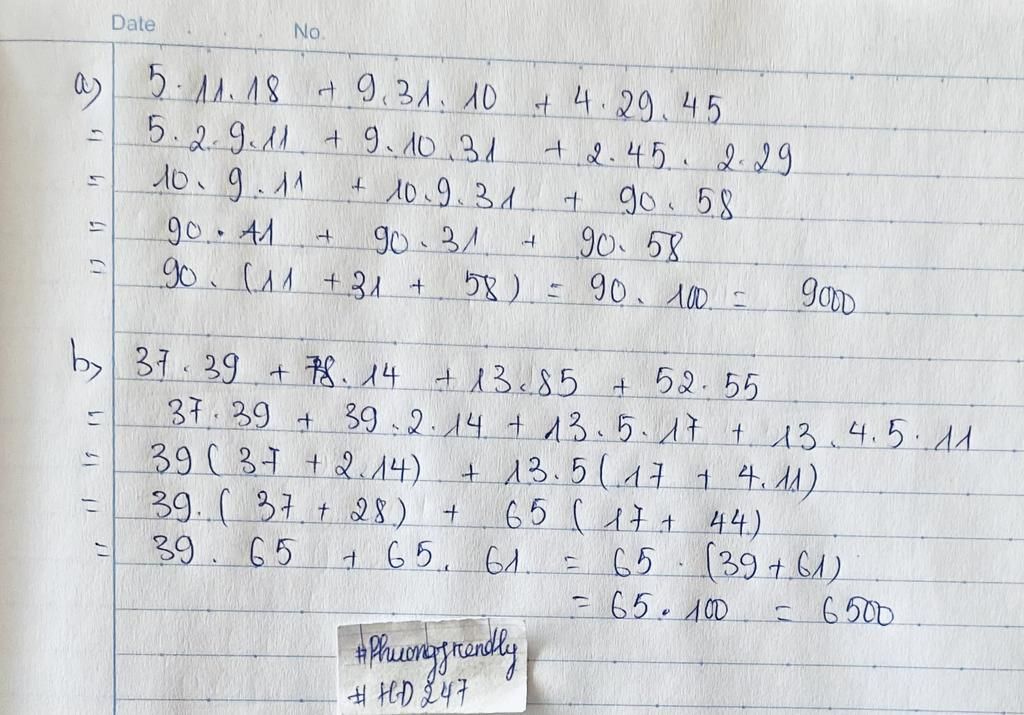 Date No.
a) 5.11.18 + 9.31.10 + 4.29.45
= 5.2.9.11 + 9.10.31 + 2.45.2.29
= 10.9.11 + 10.9.31 + 90.58
= 90.11 + 90.31 + 90.58
= 90.(11 + 31 + 58) = 90.100 = 9000
b) 37.39 + 78.14 + 13.85 + 52.55
= 37.39 + 39.2.14 + 13.5.17 + 13.4.5.11
= 39(37 + 2.14) + 13.5(17 + 4.11)
= 39.(37 + 28) + 65(17 + 44)
= 39.65 + 65.61 = 65.(39 + 61)
= 65.100 = 6500
#Phuongfriendly
#HD247